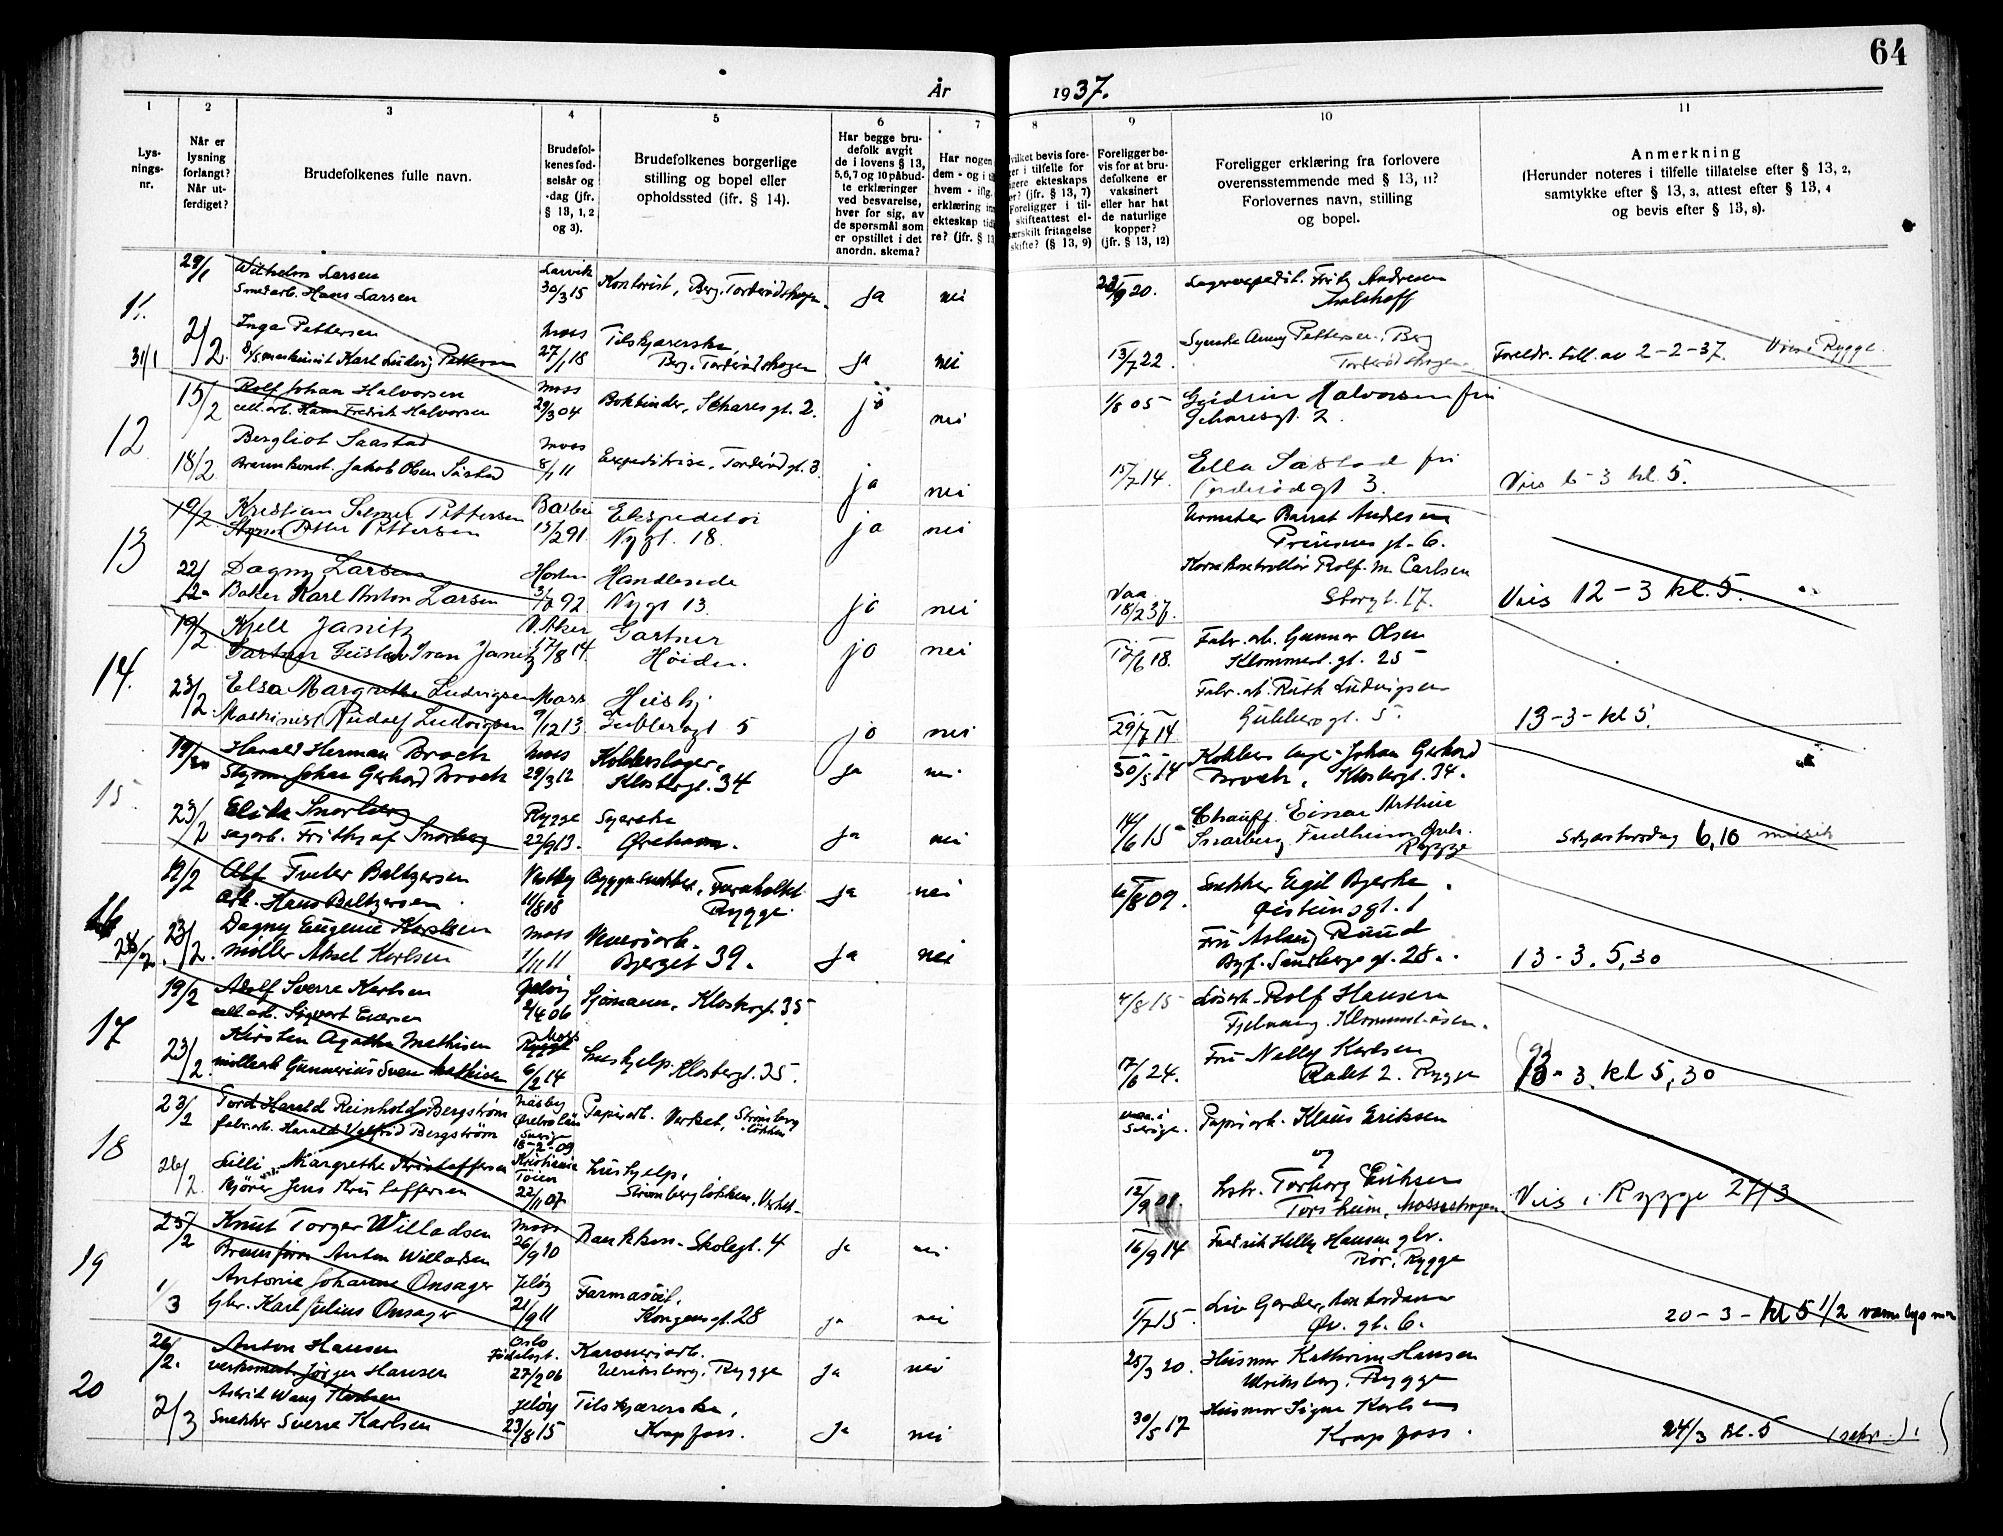 64
År 1937.
1 2 3 4 5 6 7 8 9 10 11
Lys-
nings-
nr.
Når er
lysning
forlangt?
Når ut-
ferdiget?
Brudefolkenes fulle navn.
Brudefol-
kenes fød-
selsår og
-dag (jfr.
§ 13, 1, 2
og 3).
Brudefolkenes borgerlige
stilling og bopel eller
opholdssted (ifr. § 14).
Har begge bru-
defolk avgit
de i lovens § 13,
5, 6, 7 og 10 påbud-
te erklæringer
ved besvarelse,
hver for sig, av
de spørsmål som
er opstillet i det
anordn. skema?
Har nogen
dem - og i
hvem - ifig.
erklæring in
ekteskap tid
re? (jfr. § 13
vilket bevis fore-
ger i tilfelle for
gere ekteskaps
or? (jfr. § 13, 7)
Foreligger i til-
skifteattest el-
ærskilt fritagelse
skifte? (§ 13, 9)
Foreligger be-
vis for at bru-
defolkene er
vaksinert
eller har hat
de naturlige
kopper?
(jfr. § 13, 12)
Foreligger erklæring fra forlovere
overensstemmende med § 13, 11?
Forlovernes navn, stilling
og bopel.
Anmerkning
(Herunder noteres i tilfelle tillatelse efter § 13, 2,
samtykke efter § 13, 3, attest efter § 13, 4
og bevis efter § 13, 8).
11. 29/1 Wilhelm Larsen Larvik Kontorist, Berg, Torderødskogen. ja nei 20. Lagerexpedit. Fritz Andresen
Smedarb. Hans Larsen 30/3 15
2/2. Inga Pettersen Moss Tilskjærerske ja nei 13/7 22. Syerske Anny Pettersen, Berg
31/1 maskinist Karl Ludvig Pettersen 27/1 18 Berg, Torderødskogen Torderødskogen Foreldr. till. av 2-2-37. Vies i Rygge
12 15/2 Rolf Johan Halvorsen Moss Bokbinder, Schares gt. 2. ja nei 1/8 05 Gudrun Halvorsen fru
cell. arb. Hans Fredrik Halvorsen 29/3 04 Scharesgt. 2
18/2 Bergliot Saastad Moss Expeditrise, Torderød gt. 3 ja nei 15/7 14. Ella Sastad fru
Jakob Olsen Såstad 8/1 11 Torderød gt 3. Vies 6-3 kl. 5.
13 19/2 Kristian Selmer Pettersen Ekspeditør ja nei Urmaker Andresen
Petter Pettersen 13/2 91 Nygt. 18. Prinsens gt. 6.
22/2. Dagny Larsen Horten Handlende ja nei Rolf. M. Carlsen
Baker Karl Anton Larsen 92 Nygt 13. 18/2 37. Storgt. 17. Vies 12-3 kl. 5.
14. 19/2 Kjell Janitz V. Aker Gartner ja nei 18. Fabr. arb. Gunnar Olsen
Gartner Gustav Ivan Janitz 17/8 14. Høiden. Klommest. gt. 25
23/2. Elsa Margrethe Ludvigsen Moss Hushj Fabr. arb. Ruth Ludvigsen
Maskinist Rudolf Ludvigsen 9/12 13 Gublersgt 5 ja nei 29/7 14 Gublers gt. 5. 13-3-kl 5.
15. Harald Herman Brock Moss Kobberslager, ja nei 30/5 14 Johan Gerhard
Styrm. Johan Gerhard Brock 29/3 12 Klostergt. 34 Brock, Klostergt. 34.
23/2 Elida Snarberg Rygge Syerske ja nei 14/6 15 Chauff. Einar Arthur
sagarb. Frithj af Snarberg 22/9 13. Ørehavn. Snarberg Rygge Skjærtorsdag 6,10 musik
16 19/2 Alf Baltzersen Vestby Byggesnekker, Furuholtet ja nei 6/8 09. Snekker Egil Bjerke
arb. Hans Baltzersen 11/8 08 Rygge. Øisteinsgt. 1
23/2. Dagny Eugenie Karlsen Moss ja nei Fru Aslaug Ruud
møller Aksel Karlsen 1/11 11 Bjerget 39. Byf. Sandbergs gt. 28. 13-3. 5,30
17 19/2 Adolf Sverre Karlsen Jeløy Sjømann, Klostergt. 35 4/8 15 Løsarb. Rolf Hansen
cell. arb. Sigvart Evensen 2/4 06
23/2 Kirsten Agathe Mathisen Moss Rygge Hushjelp, Klostergt. 35. 17/6 24. Fru Nelly Karlsen
møllearb Gunnerius Sven Mathisen 6/2 14 Rabet 2. Rygge 13-3. kl 5,30
18 23/2 Tord Harald Reinhold Bergstrøm Näsby Papirarb. Verket, Strømberg vac. i Papirarb. Klaus Eriksen
fabr. arb. Harald Valfrid Bergstrøm Ørebro län løkken Sverige.
Sverige
18-2-09 og
26/2. Lilli Margrethe Kristoffersen Kristiania Hushjelp, 12/9 01. Torborg Eriksen
kjører Jens Kristoffersen Tøien Strømbergløkken, Verket. Torsheim, Mosseskogen Vies i Rygge 27/3
22/11 07
19 25/2 Knut Torger Willadsen Moss Bankkas. Skolegt. 4 ja nei 16/9 14 Fredrik Helly Hansen gbr.
Anton Willadsen 26/9 10 Rør, Rygge
1/3 Antonie Johanne Onsager Jeløy Farmasøit, ja nei 1/7 15. Liv Garder,
Gbr. Karl Julius Onsager 21/9 11 Kongensgt. 28 Øv. gt. 6. 20-3-kl 5 1/2
20 26/2. Anton Hansen Oslo ja nei 25/3 20. Husmor Kathrine Hansen
verksmest. Jørgen Hansen Fødelsst. Ulriksborg, Rygge Ulriksborg, Rygge
27/2 06
2/3 Astrid Wang Karlsen Jeløy Tilskjærerske, ja nei 30/5 17 Husmor Signe Karlsen
Snekker Sverre Karlsen 23/8 15 Krapfoss. Krapfoss. 24/3 kl. 5